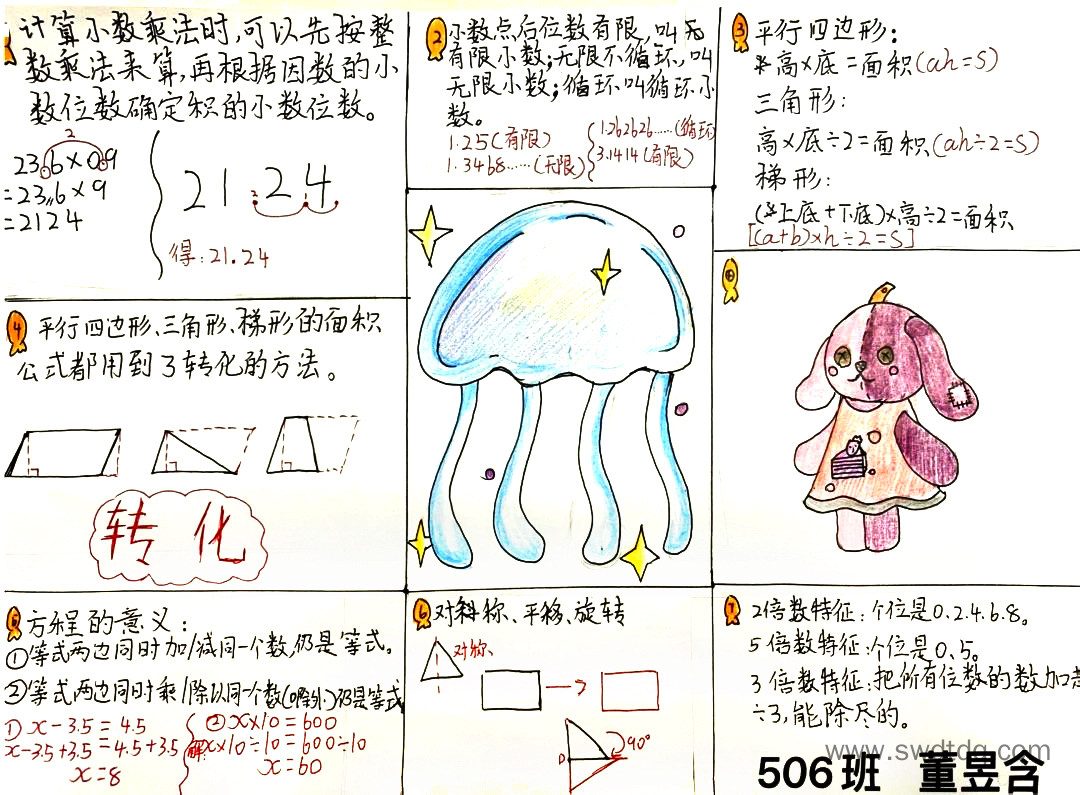 计算小数乘法时,可以先按整
数乘法来算,再根据因数的小
数位数确定积的小数位数。
2
23.6×0.9
=23.6×9
=2124
21.24
得:21.24
②
小数点后位数有限,叫无
有限小数;无限不循环,叫
无限小数;循环叫循环小
数。
1.25(有限)
1.3468……(无限)
1.262626……(循环
3.1414(有限)
③
平行四边形:
高×底=面积(ah=S)
三角形:
高×底÷2=面积(ah÷2=S)
梯形:
(上底+下底)×高÷2=面积
[(a+b)×h÷2=S]
④
平行四边形、三角形、梯形的面积
公式都用到了转化的方法。
转化
⑤
方程的意义:
①等式两边同时加/减同一个数,仍是等式。
②等式两边同时乘/除以同一个数(0除外)仍是等式
① x-3.5=4.5
x-3.5+3.5=4.5+3.5
x=8
② x×10=600
解:x×10÷10=600÷10
x=60
⑥
对斜称、平移、旋转
对称、
90°
⑦
2倍数特征:个位是0.2.4.6.8。
5倍数特征:个位是0、5。
3倍数特征:把所有位数的数加起
÷3,能除尽的。
www.swdtdq.com
506班 董昱含